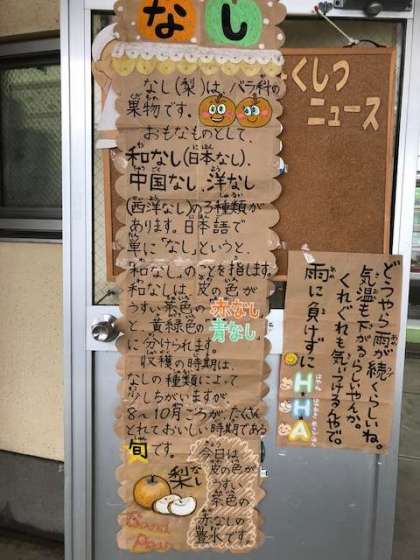 なし
なし(梨)は、バラ科の
果物です。
おもなものとして、
和なし(日本なし)、
中国なし、洋なし
(西洋なし)の3種類が
あります。日本語で
単に「なし」というと、
「和なし」のことを指します。
和なしは、皮の色が
うすい茶色の赤なし
と、黄緑色の青なし
に分けられます。
収穫の時期は、
なしの種類によって
少しちがいますが、
8〜10月ごろが、たくさん
とれておいしい時期である
旬です。
梨
なし
今日は、
皮の色が
うすい
茶色の
赤なしの
豊水です。
くしつ
ニュース
どうやら雨が続くらしいね。
気温も下がるらしいやんか。
くれぐれも気いつけるんやで。
雨に負けずに
H・H・A